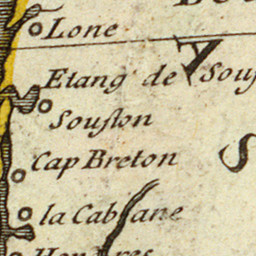 Lone
Etang de Sous
Souſlon
Cap Breton
la Cabſane